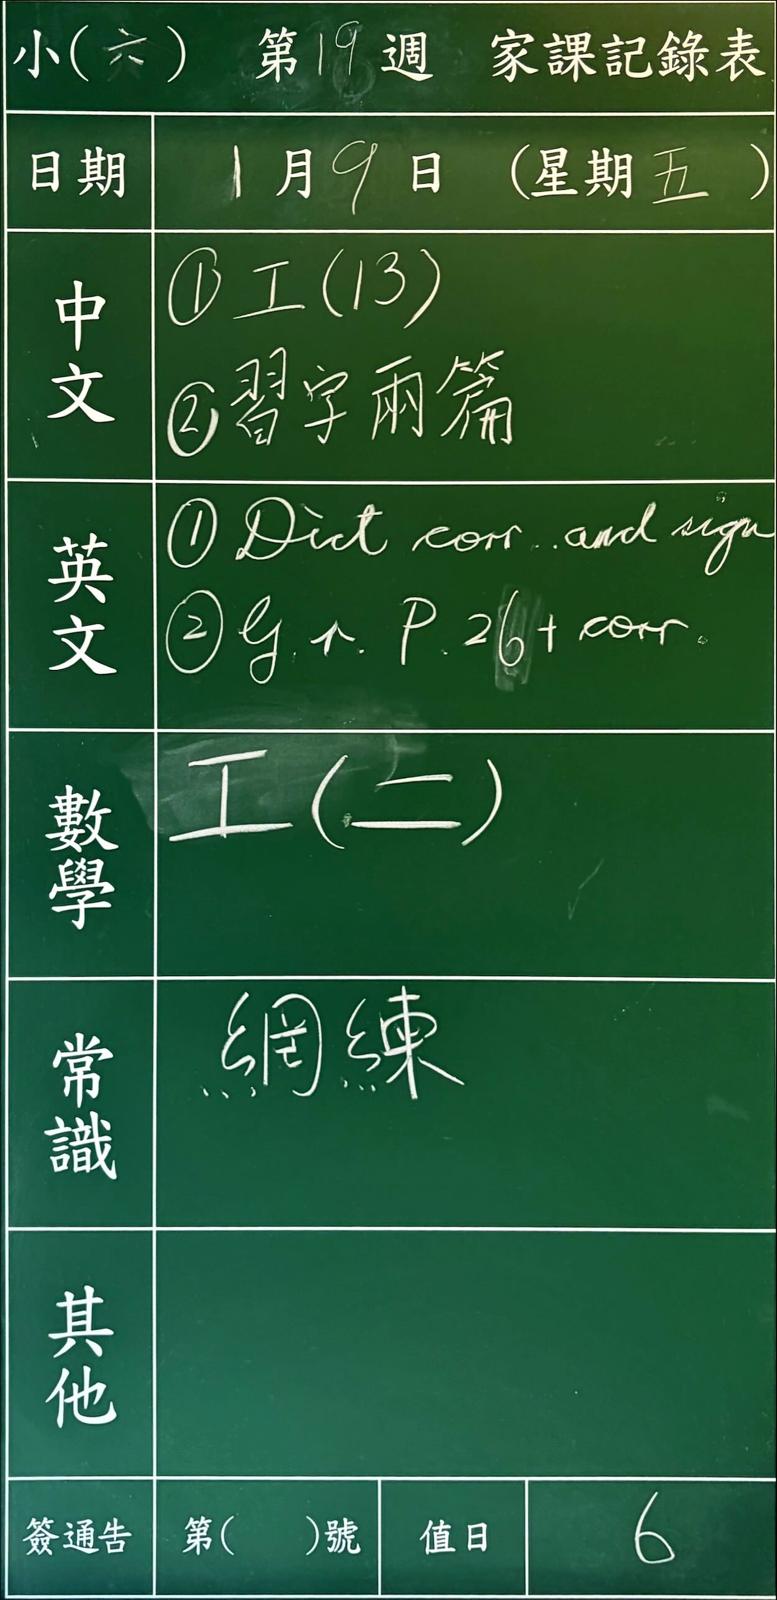 小(六) 第19週 家課記錄表
日期 1月9日 (星期五)
中文 ①工(13)
②習字兩篇
英文 ①Dict corr. and sign
②G.r. P.26+ corr.
數學 工(二)
常識 網練
其他
簽通告 第( )號 值日 6